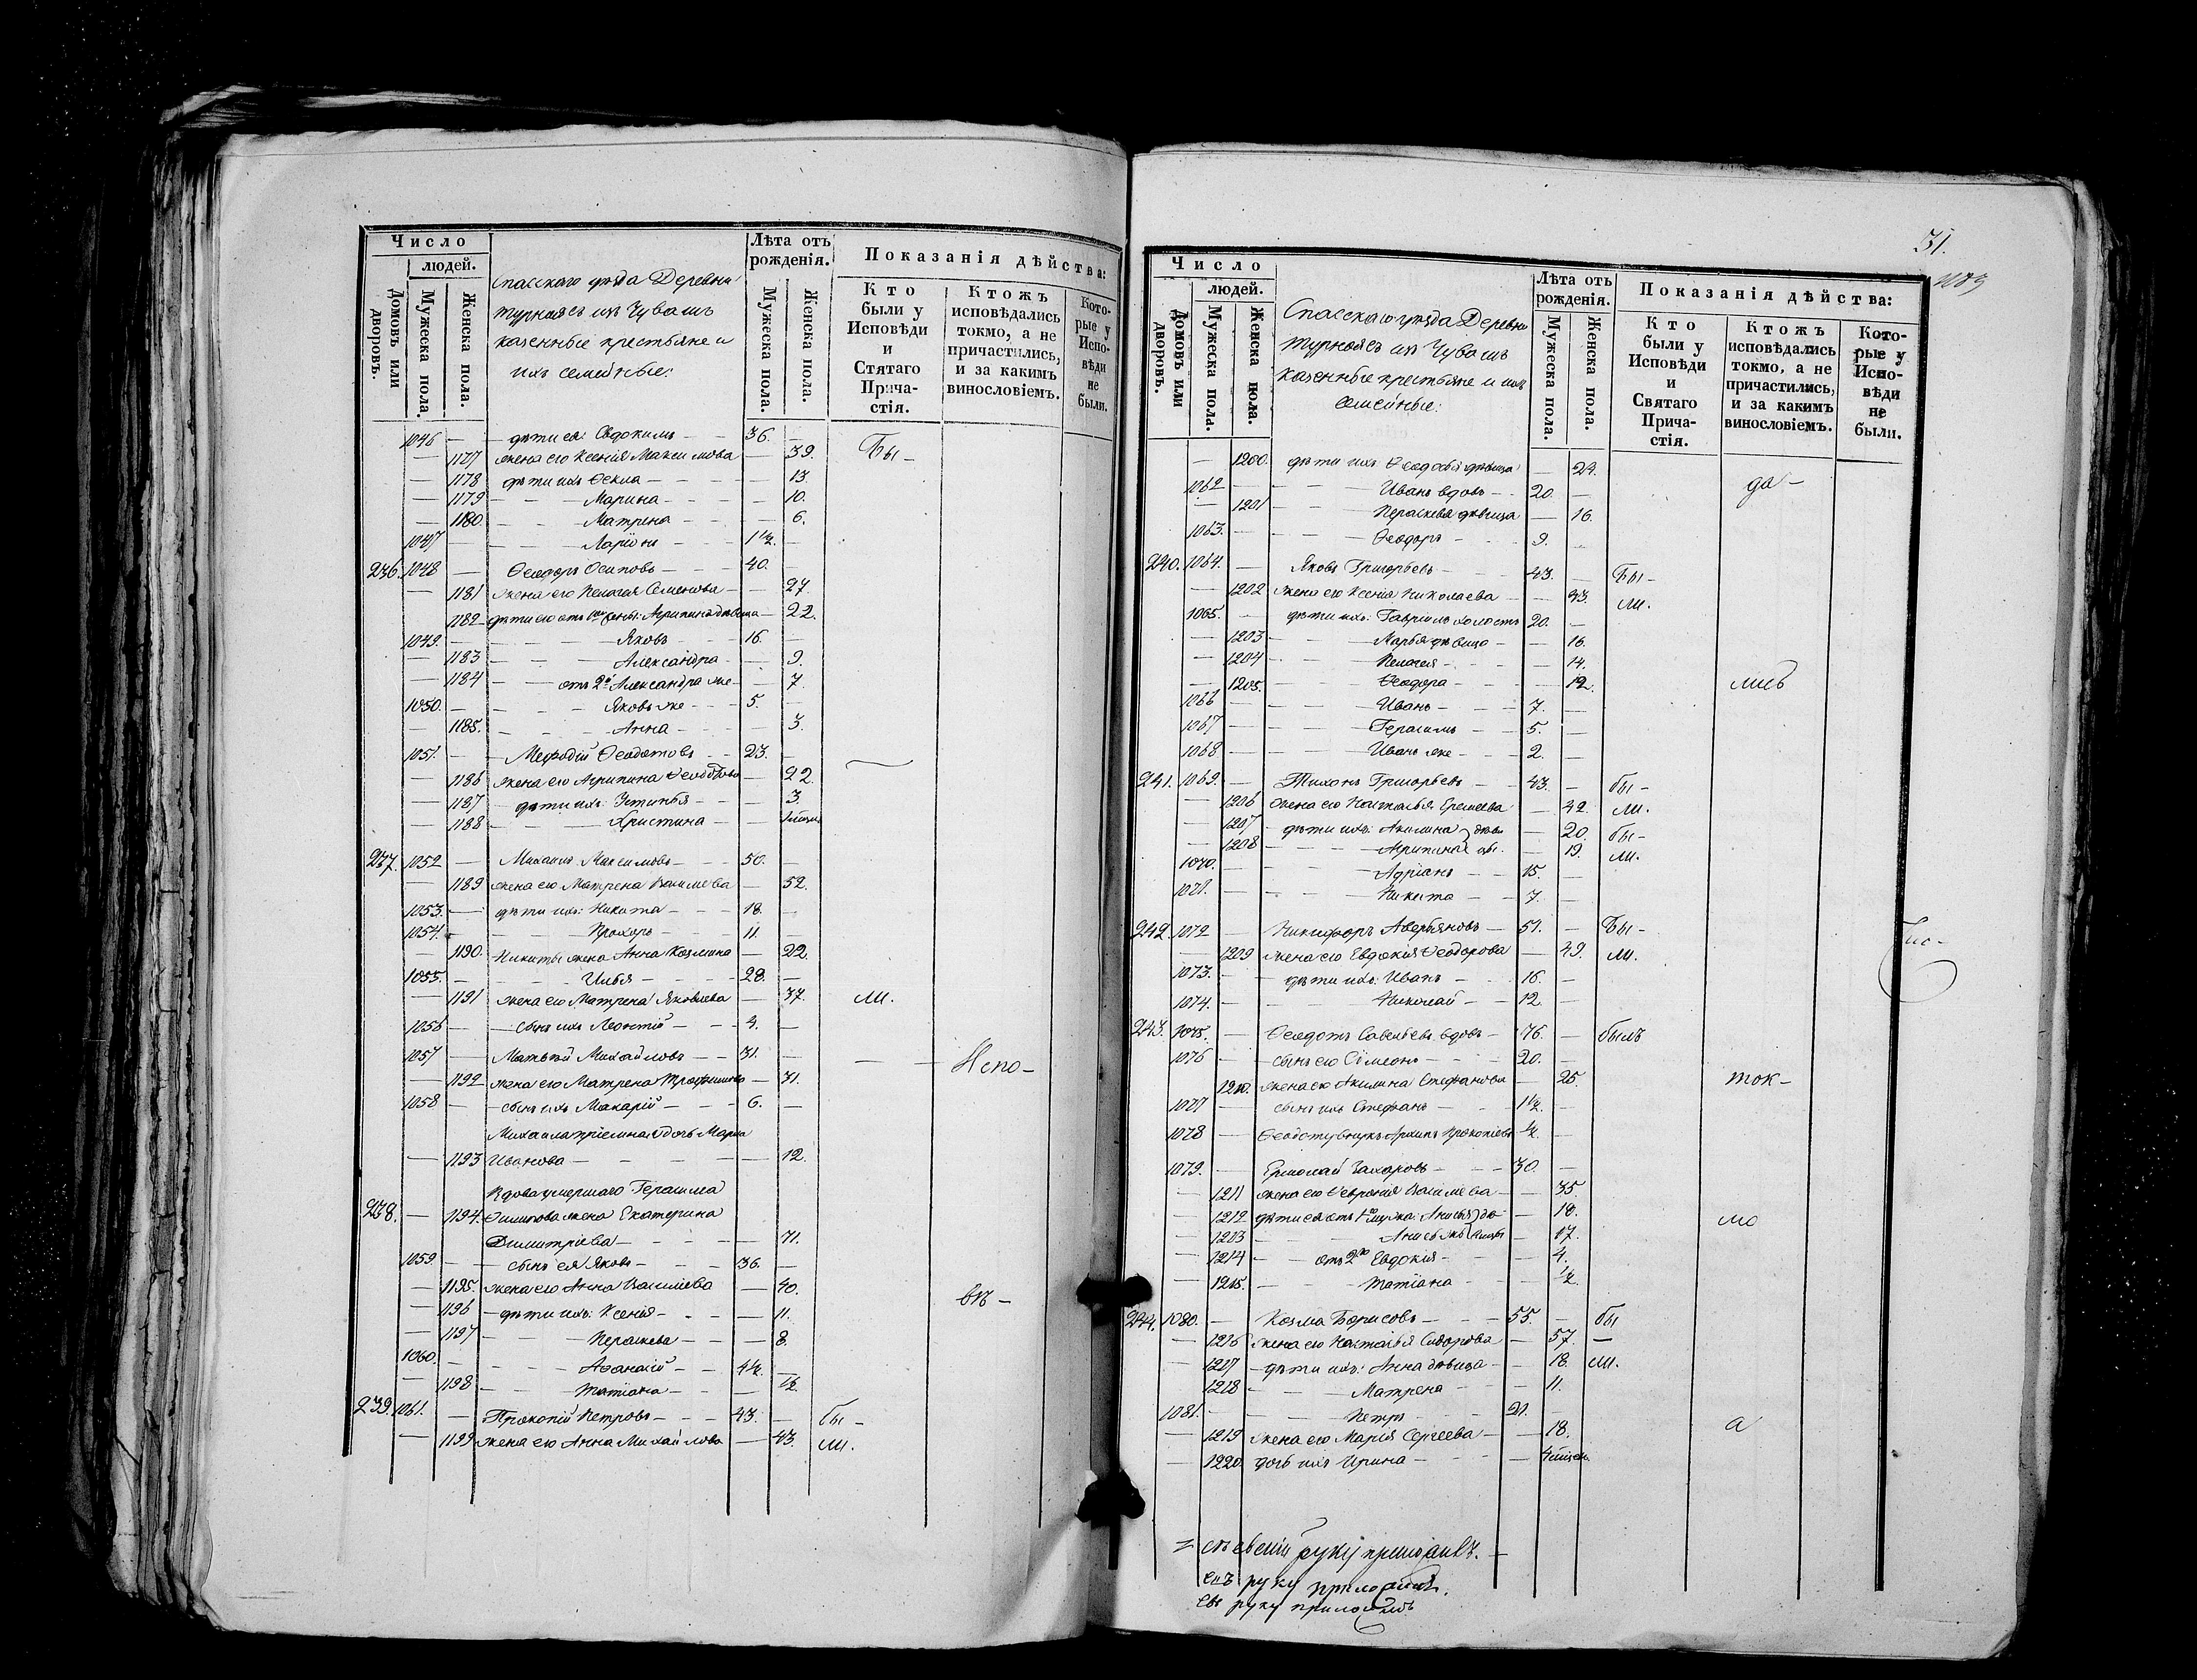 Число
людей.
Домовъ или дворовъ.
Мужеска пола.
Женска пола.
Спасскаго уѣзда Деревни
Турнаясъ изъ Чувашъ
казенные крестьяне и
ихъ семейные:
Лѣта отъ рожденія.
Мужеска пола.
Женска пола.
Показанія дѣйства:
Кто были у Исповѣди и Стятаго Прича-стія.
Ктожъ исповѣдались токмо, а не причастились, и за какимъ винословіемъ.
Кото-рые у Испо-вѣди не были.
1046 — дѣти ея: Евдокимъ — 36. — Бы-
— 1177 жена его Ксенія Максимова — 39.
— 1178 дѣти ихъ Ѳекла — 13.
— 1179 — Марина — 10.
— 1180. — Матрена — 6.
1047 — Ларіонъ — 1½. —
236. 1048 — Ѳеодоръ Осиповъ — 40. —
— 1181 жена его Пелагея Семенова — 27.
1182 дѣти его отъ 1ой жены: Агрипина дѣвица — 22.
1049. — Яковъ — 16. —
— 1183 — Александра — 9.
— 1184 — отъ 2й Александра же — 7.
1050. — Яковъ же — 5. —
— 1185. — Анна — 3.
1051. — Меѳодій Ѳеодотовъ — 23. —
— 1186 жена его Агрипина Ѳеодорова — 22.
— 1187 дѣти ихъ: Устинья — 3.
— 1188 — Христина —
237. 1052 — Михаилъ Максимовъ — 50. —
— 1189 жена его Матрена Васильева — 52.
1053. — дѣти ихъ: Никита — 18. —
1054. — Прохоръ — 11. —
— 1190. Никиты жена Анна Козмина — 22.
1055. — Илья — 28. —
— 1191 жена его Матрена Яковлева — 37. ли.
1056 — сынъ ихъ Леонтій — 4. —
1057 — Матвѣй Михайловъ — 31. — Испо-
— 1192 жена его Матрена Трофимова — 31.
1058 — сынъ ихъ Макарій — 6. —
Михаила пріемная дочь Марья
— 1193 Иванова — 12.
Вдова умершаго Герасима
238. — 1194. Филипова жена Екатерина
Димитріева — 71.
1059. — сынъ ея Яковъ — 36. —
— 1195. жена его Анна Васильева — 40.
вѣ-
— 1196 — дѣти ихъ: Ксенія — 11.
— 1197 — Пераскева — 8.
1060. — Аѳанасій — 4½. —
— 1198 — Татіана — ½.
239. 1061. — Прокопій Петровъ — 43. — бы-
— 1199 жена его Анна Михайлова — 43. ли.
31.
Число
людей.
Домовъ или дворовъ.
Мужеска пола.
Женска пола.
Спасскаго уѣзда Деревни
Турнаясъ изъ Чувашъ
казенные крестьяне и ихъ
семейные:
Лѣта отъ рожденія.
Мужеска пола.
Женска пола.
Показанія дѣйства:
Кто были у Исповѣди и Святаго Прича-стія.
Ктожъ исповѣдались токмо, а не причастились, и за какимъ винословіемъ.
Кото-рые у Испо-вѣди не были.
— 1200. дѣти ихъ Ѳеодосья дѣвица — 24.
да-
1062 — Иванъ вдовъ — 20. —
— 1201 — Пераскева дѣвица — 16.
1063. — Ѳеодоръ — 9. —
240. 1064. — Яковъ Григорьевъ — 43. — Бы-
— 1202 жена его Ксенія Николаева — 43. ли.
1065. — дѣти ихъ: Гавріилъ холостъ 20. —
— 1203 — Марья дѣвица — 16.
— 1204 — Пелагея — 14.
— 1205. — Ѳеодора — 12. лись
1066 — Иванъ — 7. —
1067 — Герасимъ — 5. —
1068 — Иванъ же — 2. —
241. 1069. — Тихонъ Григорьевъ — 43. — бы-
— 1206 жена его Наталья Еремеева — 42. ли.
— 1207 дѣти ихъ: Акилина — 20. бы-
— 1208 — Агрипина — 19. ли.
1070. — Адріанъ — 15. —
1071. — Никита — 7. —
242. 1072 — Никифоръ Аверьяновъ — 51. — Бы-
— 1209 жена его Евдокія Ѳеодорова — 49. ли.
1073. — дѣти ихъ: Иванъ — 16. —
1074. — Николай — 12. —
243. 1075. — Ѳеодотъ Савельевъ вдовъ — 76. — былъ
1076 — сынъ его Сімеонъ — 20. —
1210. жена его Акилина Стефанова — 25.
ток-
1077 — сынъ ихъ Стефанъ — 1½. —
1078 — Ѳеодоту внукъ Архипъ Прокопіевъ ½. —
1079. — Ермолай Захаровъ — 30. —
— 1211 жена его Ѳевронія Васильева — 35.
— 1212 дѣти ея отъ 1го мужа: Анисья — 18.
мо
— 1213 — Анисья же — 17.
— 1214 — отъ 2го Евдокія — 4.
— 1215. — Татіана — ½.
244. 1080. — Козма Борисовъ — 55. — бы
— 1216 жена его Наталья Сидорова — 57. —
— 1217 — дѣти ихъ: Анна дѣвица — 18. ли.
— 1218 — Матрена — 11.
1081. — Петръ — 21. —
а
— 1219 жена его Марія Сергеева — 18.
— 1220. дочь ихъ Ирина —
руку приложилъ.
руку приложилъ.
руку приложилъ